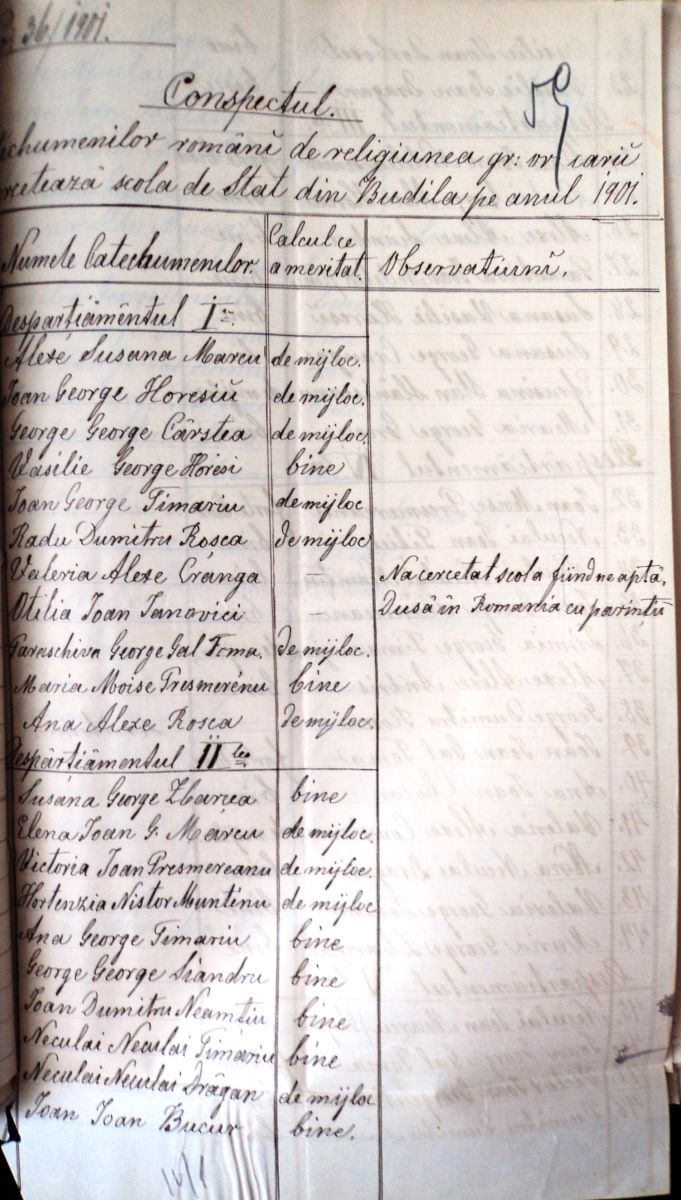 36/1901.
59
Conspectul.
techumenilor românĭ de religiunea gr: or: cariĭ
rcetează scola de Stat din Budila pe anul 1901.
Numele Catechumenilor. Calcul ce a meritat. Observatiunĭ.
Despărţiămêntul I
Alexé Susana Marcu de mijloc.
Ioan George Horesiŭ de mijloc.
George George Cârstea de mijloc.
Vasilie George Horesi bine
Ioan George Timariu de mijloc
Radu Dumitru Rosca de mijloc
Valeria Alexe Crânga — Na cercetat scola fiind ne aptă,
Otilia Ioan Ianovici — Dusă în Romania cu parintiĭ
Paraschiva George Gal Toma. de mijloc.
Maria Moise Presmerénu bine
Ana Alexe Rosca de mijloc.
Despărtiâmentul II lea
Susána George Zbarcea bine
Elena Ioan G. Márcu de mijloc.
Victoria Ioan Presmereanu de mijloc.
Hortenzia Nistor Munténu de mijloc
Ana George Timariu bine
George George Siandru bine
Ioan Dumitru Neamţiu bine
Neculai Neculai Timáriu bine
Neculai Neculai Drăgan de mijloc
Ioan Ioan Bucur bine.